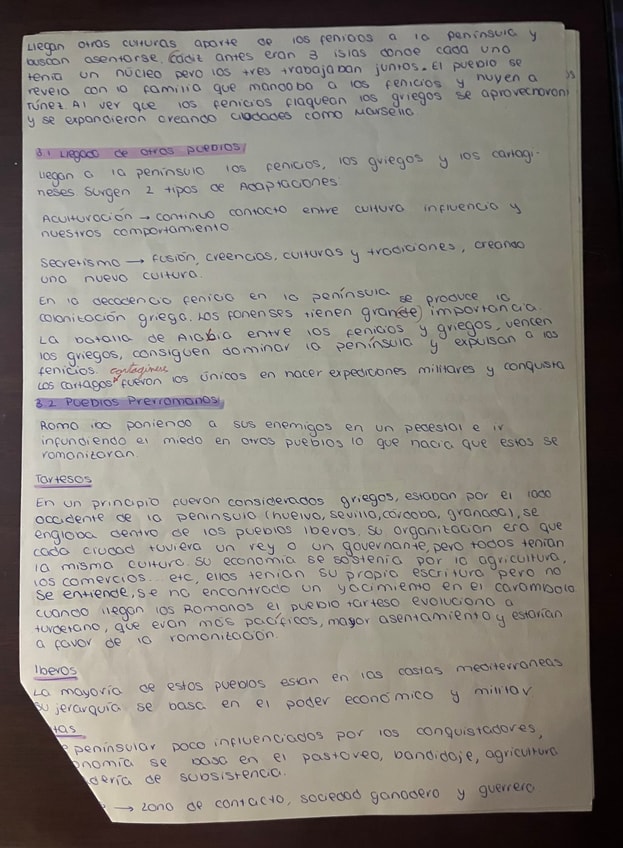 Llegan otras culturas aparte de los fenicios a la península y
buscan asentarse. Cádiz antes eran 3 islas donde cada una
tenía un núcleo pero las tres trabajaban juntas. El pueblo se
revela con la familia que mandaba a los fenicios y huyen a
Túnez. Al ver que los fenicios flaquean los griegos se aprovecharon
y se expandieron creando ciudades como Marsella
3.1 Llegada de otros pueblos
Llegan a la península los fenicios, los griegos y los cartagi-
neses surgen 2 tipos de Adaptaciones:
Aculturación → continuo contacto entre cultura influencia y
nuestros comportamiento.
Secretismo → fusión, creencias, culturas y tradiciones, creando
una nueva cultura.
En la decadencia fenicia en la península se produce la
colonización griega. Los fonenses tienen gran(de) importancia.
La batalla de Alabia entre los fenicios y griegos, vencen
los griegos, consiguen dominar la península y expulsan a los
fenicios. cartagineses
Los cartagos fueron los únicos en hacer expediciones militares y conquista
3.2 Pueblos Prerromanos
Roma iba poniendo a sus enemigos en un pedestal e ir
infundiendo el miedo en otros pueblos lo que hacía que estos se
romanizaran.
Tartesos
En un principio fueron considerados griegos, estaban por el lado
occidente de la península (huelva, sevilla, córdoba, granada), se
engloba dentro de los pueblos Iberos. Su organización era que
cada ciudad tuviera un rey o un governante, pero todos tenían
la misma cultura. Su economía se sostenía por la agricultura,
los comercios... etc, ellos tenían su propia escritura pero no
se entiende, se na encontrado un yacimiento en el carambola
cuando llegan los Romanos el pueblo tarteso evoluciona a
turdetano, que eran más pacíficos, mayor asentamiento y estarían
a favor de la romanización.
Iberos
La mayoría de estos pueblos están en las costas mediterráneas
su jerarquía se basa en el poder económico y militar
tas
peninsular poco influenciados por los conquistadores,
onomía se basa en el pastoreo, bandidaje, agricultura
dería de subsistencia.
→ zona de contacto, sociedad ganadera y guerrera